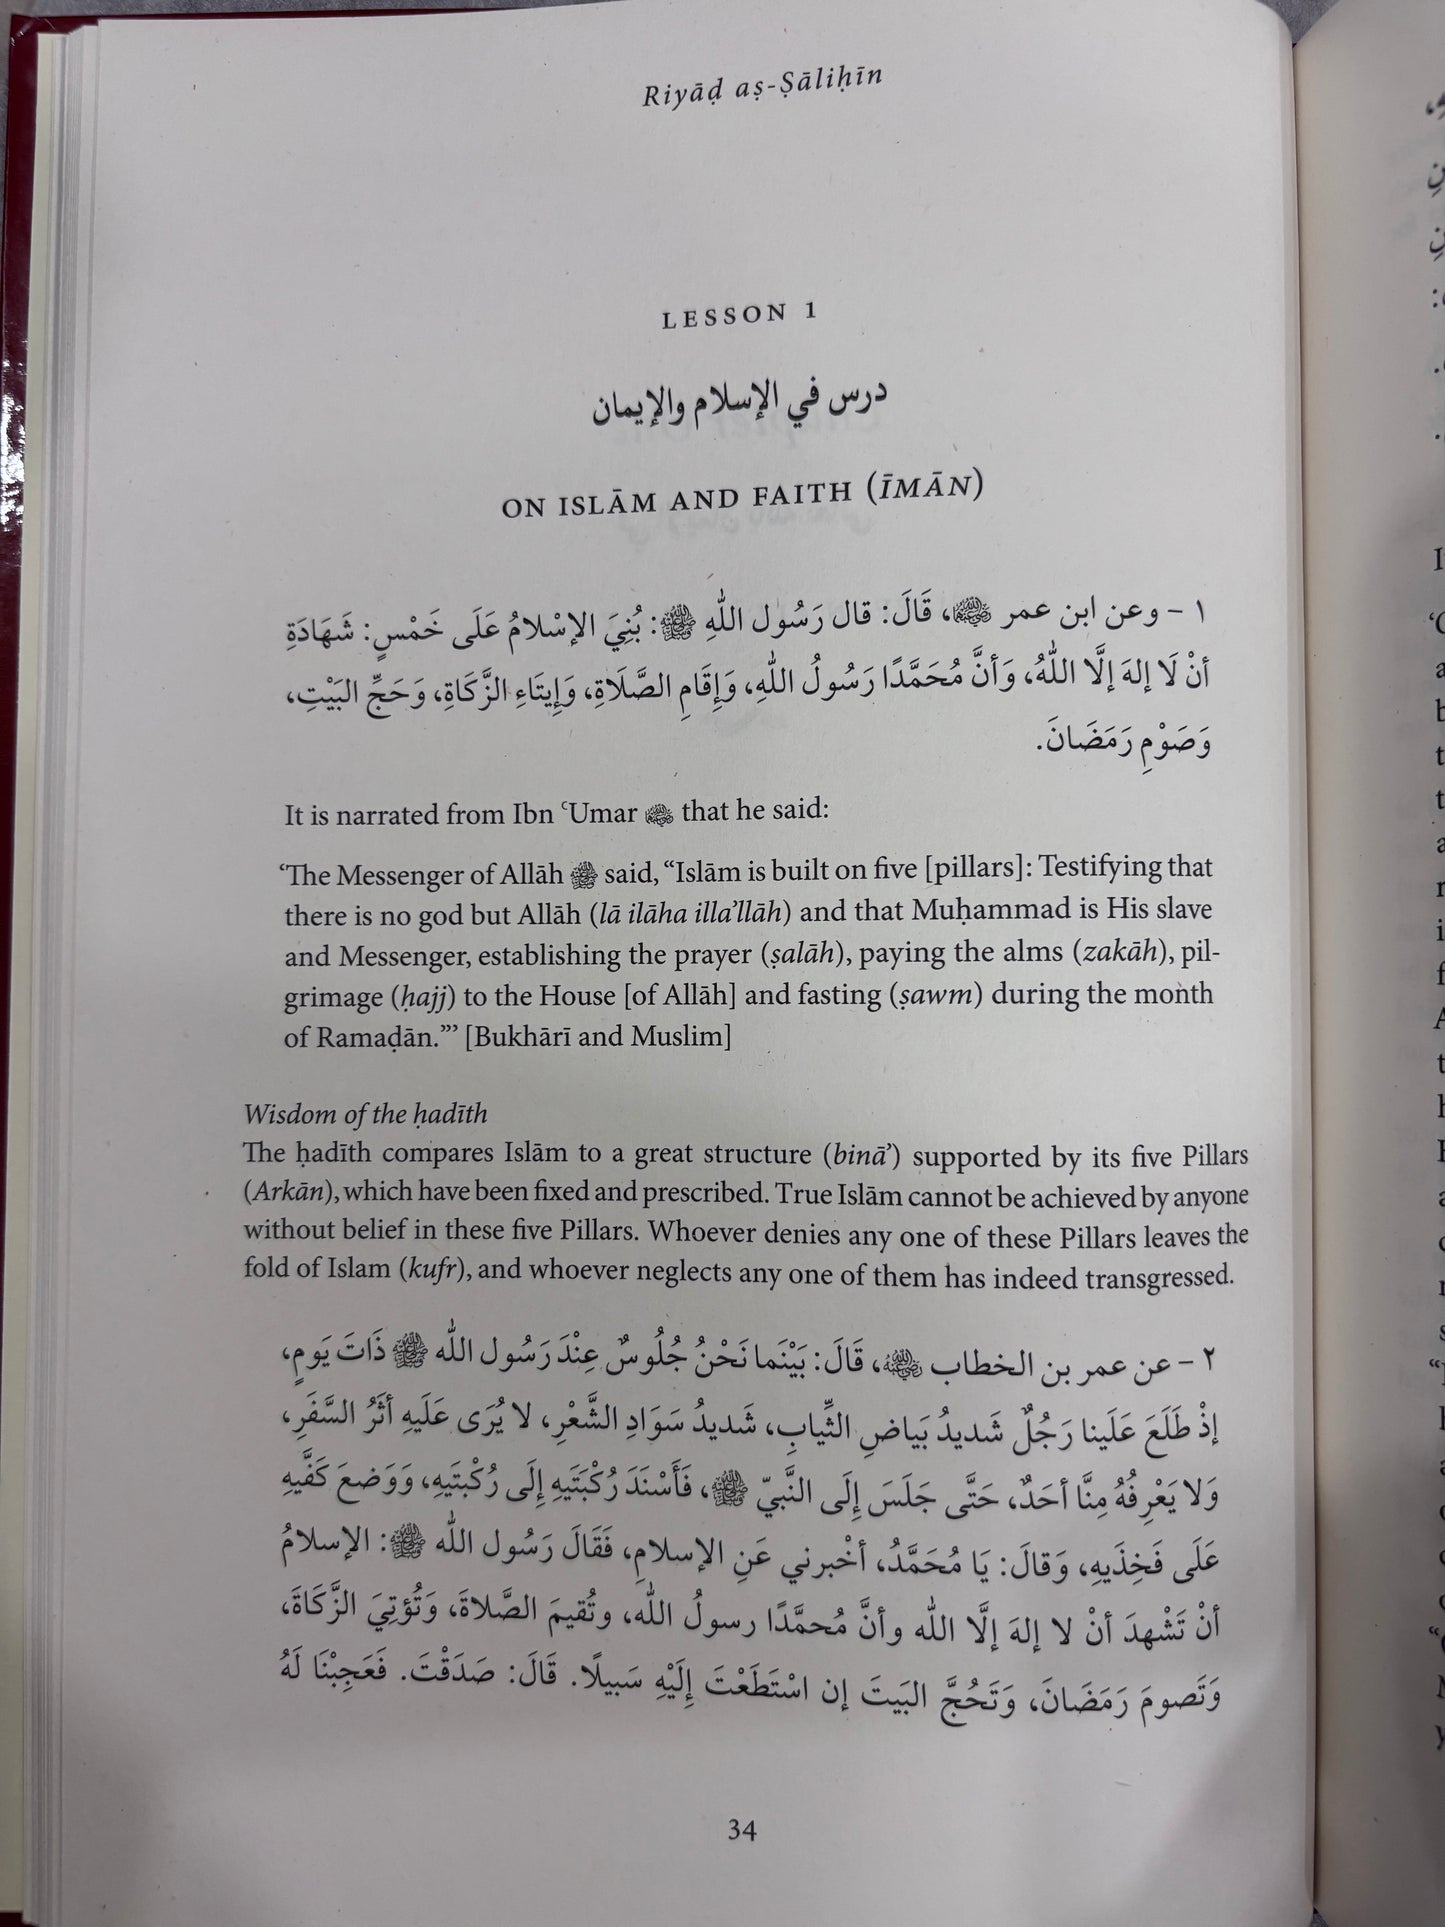 Riyāḍ aṣ-Ṣāliḥīn
LESSON 1
درس في الإسلام والإيمان
ON ISLĀM AND FAITH (ĪMĀN)
١ - وعن ابن عمر ﵁، قَالَ: قال رَسُول اللهِ ﷺ: بُنِيَ الإسْلامُ عَلَى خَمْسٍ: شَهَادَةِ
أنْ لَا إلهَ إلَّا اللهُ، وَأنَّ مُحَمَّدًا رَسُولُ اللهِ، وَإقَامِ الصَّلَاةِ، وَإِيتَاءِ الزَّكَاةِ، وَحَجِّ البَيْتِ،
وَصَوْمِ رَمَضَانَ.
It is narrated from Ibn ʿUmar ﵁ that he said:
‘The Messenger of Allāh ﷺ said, “Islām is built on five [pillars]: Testifying that
there is no god but Allāh (lā ilāha illa’llāh) and that Muḥammad is His slave
and Messenger, establishing the prayer (ṣalāh), paying the alms (zakāh), pil-
grimage (ḥajj) to the House [of Allāh] and fasting (ṣawm) during the month
of Ramaḍān.”’ [Bukhārī and Muslim]
Wisdom of the ḥadīth
The ḥadīth compares Islām to a great structure (binā’) supported by its five Pillars
(Arkān), which have been fixed and prescribed. True Islām cannot be achieved by anyone
without belief in these five Pillars. Whoever denies any one of these Pillars leaves the
fold of Islam (kufr), and whoever neglects any one of them has indeed transgressed.
٢ - عن عمر بن الخطاب ﵁، قَالَ: بَيْنَما نَحْنُ جُلُوسٌ عِنْدَ رَسُول الله ﷺ ذَاتَ يَومٍ،
إذْ طَلَعَ عَلَينا رَجُلٌ شَديدُ بَياضِ الثِّيابِ، شَديدُ سَوَادِ الشَّعْرِ، لا يُرَى عَلَيهِ أثَرُ السَّفَرِ،
وَلا يَعْرِفُهُ مِنَّا أحَدٌ، حَتَّى جَلَسَ إِلَى النَّبيّ ﷺ، فَأَسْنَدَ رُكْبَتَيهِ إِلَى رُكْبتَيهِ، وَوَضعَ كَفَّيهِ
عَلَى فَخِذَيهِ، وَقالَ: يَا مُحَمَّدُ، أخْبرني عَنِ الإسلامِ، فَقَالَ رَسُول الله ﷺ: الإسلامُ
أنْ تَشْهدَ أنْ لا إلهَ إلَّا الله وأنَّ مُحمَّدًا رسولُ الله، وتُقيمَ الصَّلاةَ، وَتُؤتِيَ الزَّكَاةَ،
وَتَصومَ رَمَضَانَ، وَتَحُجَّ البَيتَ إن اسْتَطَعْتَ إِلَيْهِ سَبيلًا. قَالَ: صَدَقْتَ. فَعَجِبْنَا لَهُ
34